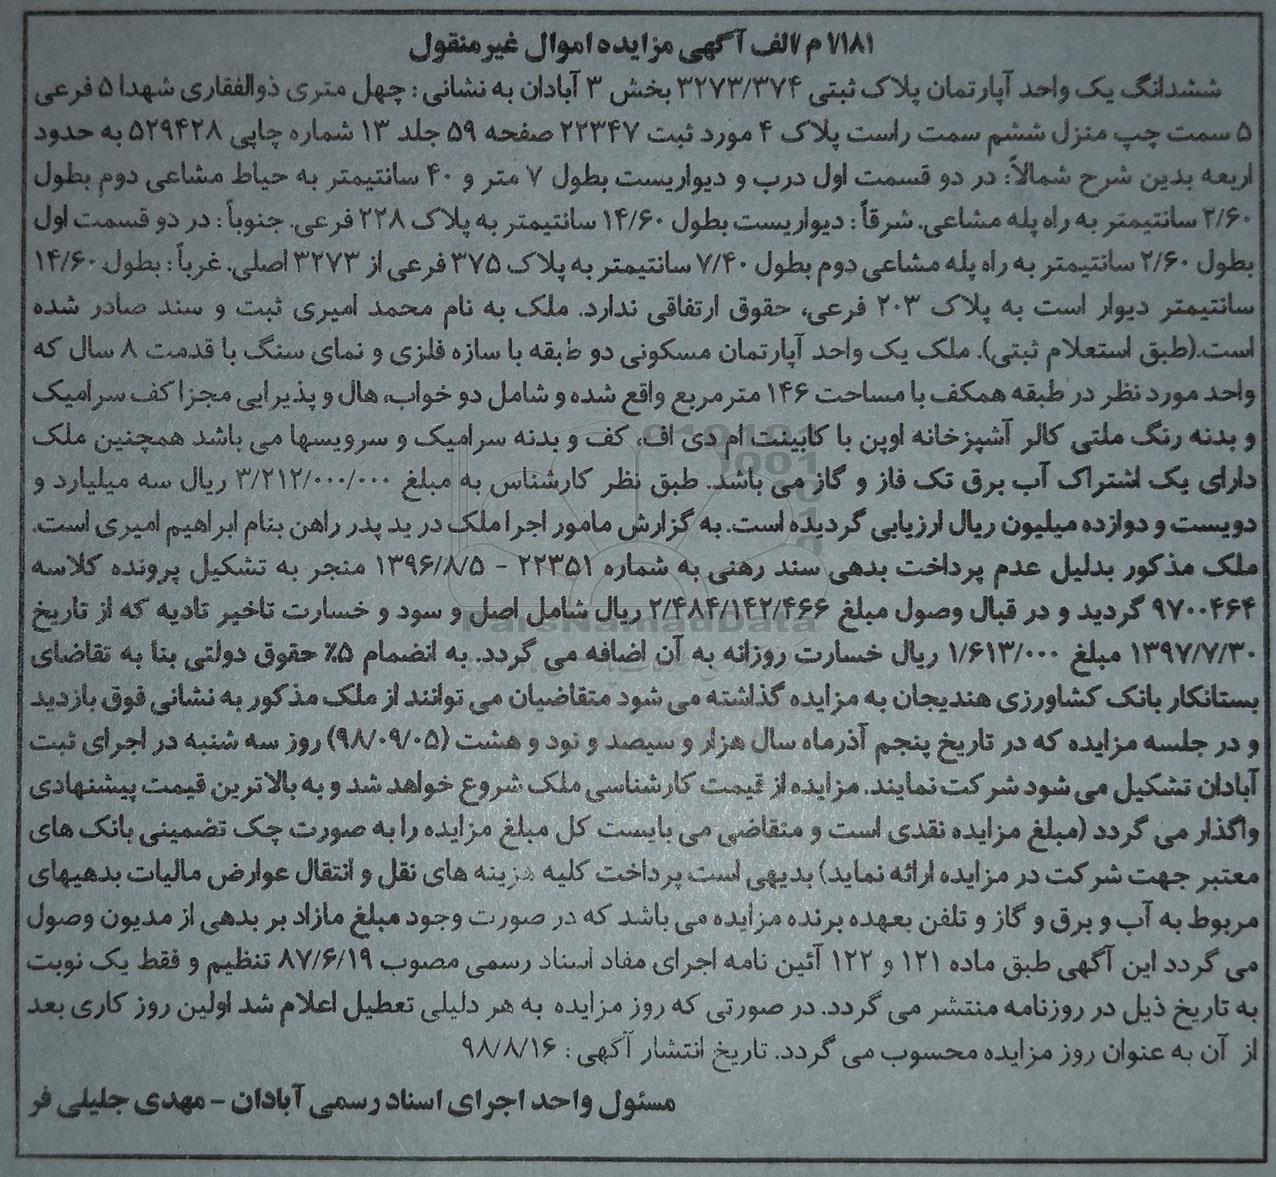 ۷۱۸۱/ م الف آگهی مزایده اموال غیرمنقول
ششدانگ یک واحد آپارتمان پلاک ثبتی ۳۲۷۳/۳۷۴ بخش ۳ آبادان به نشانی : چهل متری ذوالفقاری شهدا ۵ فرعی
۵ سمت چپ منزل ششم سمت راست پلاک ۴ مورد ثبت ۲۲۳۴۷ صفحه ۵۹ جلد ۱۳ شماره چاپی ۵۲۹۴۲۸ به حدود
اربعه بدین شرح شمالاً: در دو قسمت اول درب و دیواریست بطول ۷ متر و ۴۰ سانتیمتر به حیاط مشاعی دوم بطول
۲/۶۰ سانتیمتر به راه پله مشاعی. شرقاً : دیواریست بطول ۱۴/۶۰ سانتیمتر به پلاک ۲۲۸ فرعی. جنوباً : در دو قسمت اول
بطول ۲/۶۰ سانتیمتر به راه پله مشاعی دوم بطول ۷/۴۰ سانتیمتر به پلاک ۳۷۵ فرعی از ۳۲۷۳ اصلی. غرباً : بطول ۱۴/۶۰
سانتیمتر دیوار است به پلاک ۲۰۳ فرعی، حقوق ارتفاقی ندارد. ملک به نام محمد امیری ثبت و سند صادر شده
است.(طبق استعلام ثبتی). ملک یک واحد آپارتمان مسکونی دو طبقه با سازه فلزی و نمای سنگ با قدمت ۸ سال که
واحد مورد نظر در طبقه همکف با مساحت ۱۴۶ مترمربع واقع شده و شامل دو خواب، هال و پذیرایی مجزا کف سرامیک
و بدنه رنگ ملتی کالر آشپزخانه اوپن با کابینت ام دی اف، کف و بدنه سرامیک و سرویسها می باشد همچنین ملک
دارای یک اشتراک آب برق تک فاز و گاز می باشد. طبق نظر کارشناس به مبلغ ۳/۲۱۲/۰۰۰/۰۰۰ ریال سه میلیارد و
دویست و دوازده میلیون ریال ارزیابی گردیده است. به گزارش مامور اجرا ملک در ید پدر راهن بنام ابراهیم امیری است.
ملک مذکور بدلیل عدم پرداخت بدهی سند رهنی به شماره ۲۲۳۵۱ - ۱۳۹۶/۸/۵ منجر به تشکیل پرونده کلاسه
۹۷۰۰۴۶۴ گردید و در قبال وصول مبلغ ۲/۴۸۴/۱۴۲/۴۶۶ ریال شامل اصل و سود و خسارت تاخیر تادیه که از تاریخ
۱۳۹۷/۷/۳۰ مبلغ ۱/۶۱۳/۰۰۰ ریال خسارت روزانه به آن اضافه می گردد. به انضمام ۵٪ حقوق دولتی بنا به تقاضای
بستانکار بانک کشاورزی هندیجان به مزایده گذاشته می شود متقاضیان می توانند از ملک مذکور به نشانی فوق بازدید
و در جلسه مزایده که در تاریخ پنجم آذرماه سال هزار و سیصد و نود و هشت (۹۸/۰۹/۰۵) روز سه شنبه در اجرای ثبت
آبادان تشکیل می شود شرکت نمایند. مزایده از قیمت کارشناسی ملک شروع خواهد شد و به بالاترین قیمت پیشنهادی
واگذار می گردد (مبلغ مزایده نقدی است و متقاضی می بایست کل مبلغ مزایده را به صورت چک تضمینی بانک های
معتبر جهت شرکت در مزایده ارائه نماید) بدیهی است پرداخت کلیه هزینه های نقل و انتقال عوارض مالیات بدهیهای
مربوط به آب و برق و گاز و تلفن بعهده برنده مزایده می باشد که در صورت وجود مبلغ مازاد بر بدهی از مدیون وصول
می گردد این آگهی طبق ماده ۱۲۱ و ۱۲۲ آئین نامه اجرای مفاد اسناد رسمی مصوب ۸۷/۶/۱۹ تنظیم و فقط یک نوبت
به تاریخ ذیل در روزنامه منتشر می گردد. در صورتی که روز مزایده به هر دلیلی تعطیل اعلام شد اولین روز کاری بعد
از آن به عنوان روز مزایده محسوب می گردد. تاریخ انتشار آگهی : ۹۸/۸/۱۶
مسئول واحد اجرای اسناد رسمی آبادان - مهدی جلیلی فر
ParsNamadData